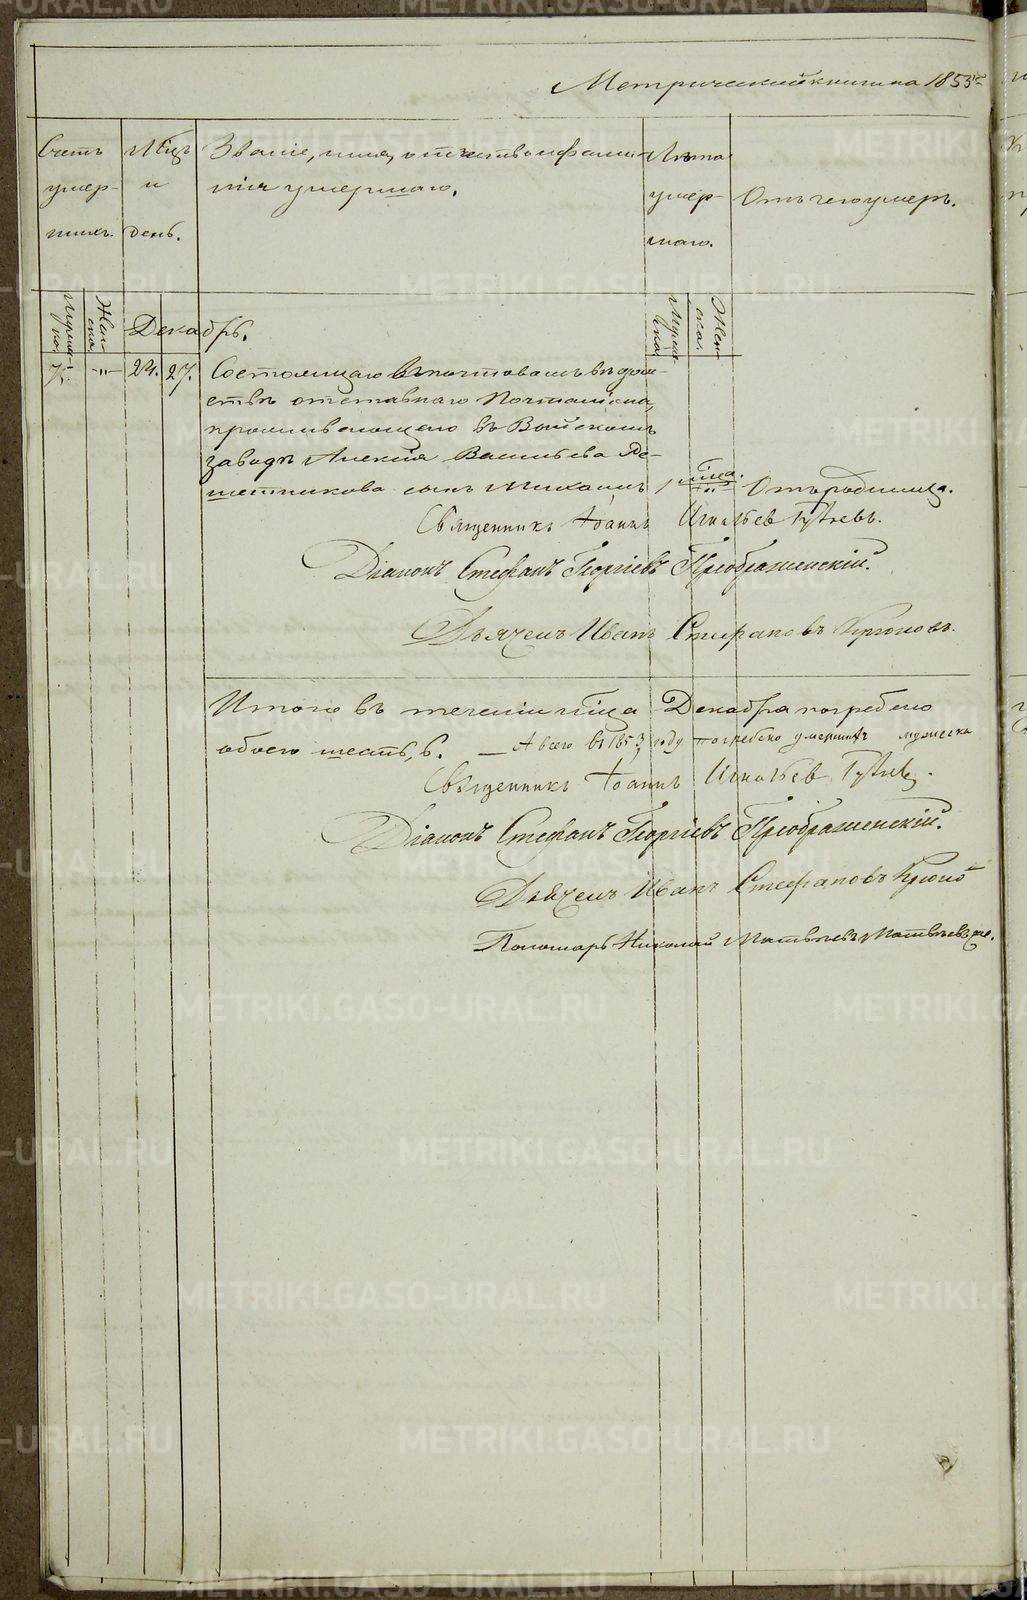 Метрической книги на 1853й
Счетъ умер-шихъ.
Мѣсяцъ и день.
Званіе, имя, отчество и фами-
лія умершаго.
Лѣта умер-шаго.
Отъ чего умеръ.
Мужеска.
Женска.
Мужеска.
Женска.
Декабрь.
24. 27. Состоящаго въ почтовомъ вѣдом-
ствѣ отставнаго Почталіона,
проживающаго въ
заводѣ Алексѣя Васильева Рѣ-
шетникова сынъ Михаилъ 1 м̃ца. " Отъ родимца.
Священникъ Іоаннъ Игнатьев
Діаконъ Стефанъ Георгіевъ Преображенскій.
Дьячекъ Иванъ Стефановъ Крюковъ.
Итого въ теченіи м̃ца Декабря погребено
обоего шесть, 6. — А всего въ 1853 году погребено умершихъ мужеска
Священникъ Іоаннъ Игнатьев
Діаконъ Стефанъ Георгіевъ Преображенскій.
Дьячекъ Иванъ Стефановъ Крюковъ
Пономарь Николай Матвѣевъ
METRIKI.GASO-URAL.RU